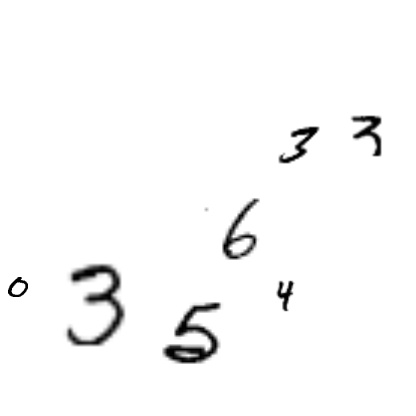 3 3
6
0 3 5 4